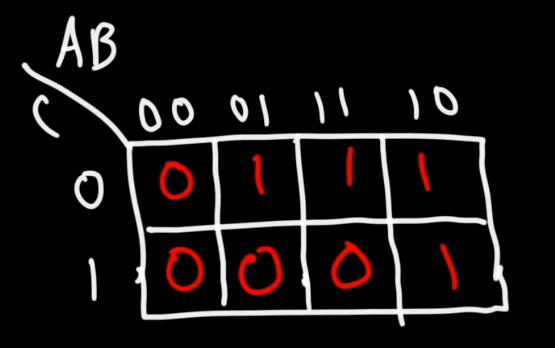 AB
C
00 01 11 10
0 0 1 1 1
1 0 0 0 1